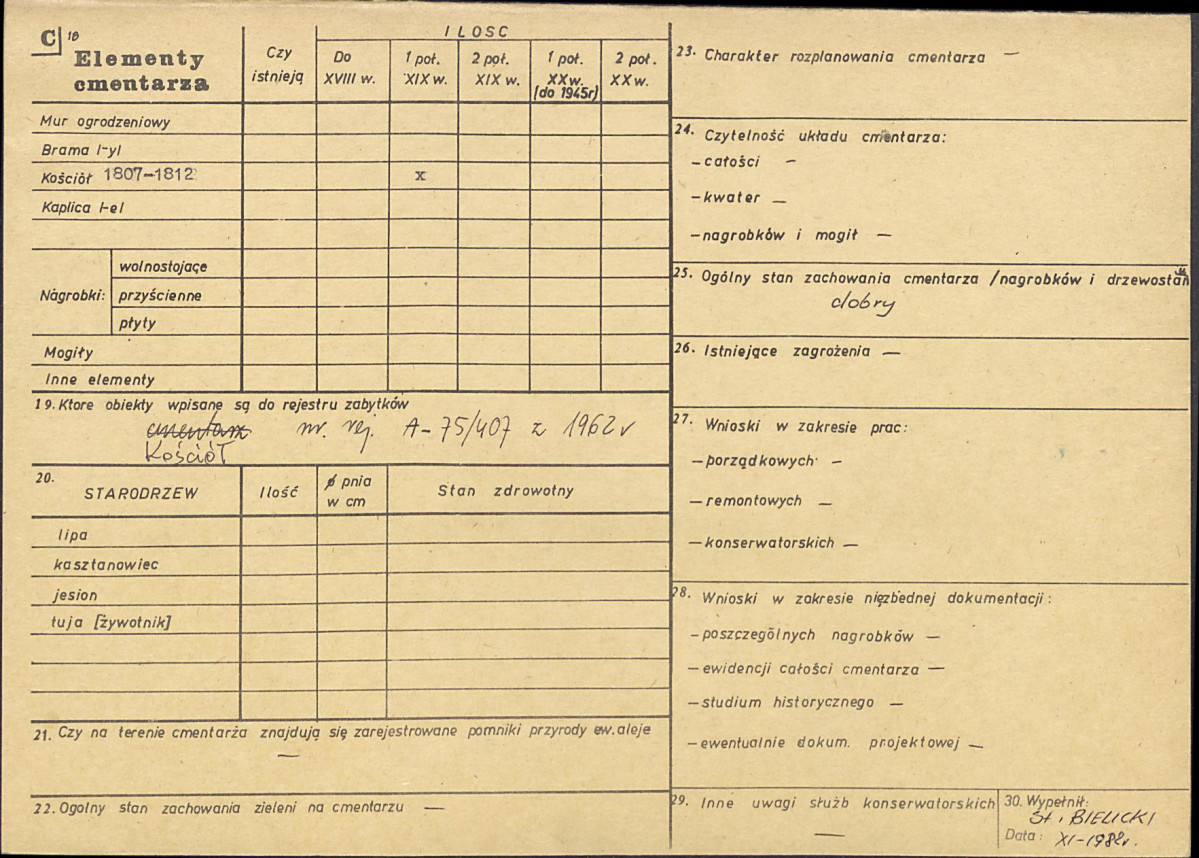 C 18 Elementy cmentarza
Czy istnieją
ILOSC
Do XVIII w.
1 poł. XIX w.
2 poł. XIX w.
1 poł. XX w. (do 1945r)
2 poł. XX w.
Mur ogrodzeniowy
Brama I-yl
Kościół 1807-1812 x
Kaplica I-el
Nagrobki:
wolnostojące
przyścienne
płyty
Mogiły
Inne elementy
19. Ktore obiekty wpisane są do rejestru zabytków
cmentarz nr. rej. A-75/407 z 1962 r
Kościół
20. STARODRZEW
Ilość
ø pnia w cm
Stan zdrowotny
lipa
kasztanowiec
jesion
tuja [żywotnik]
21. Czy na terenie cmentarża znajdują się zarejestrowane pomniki przyrody ew. aleje
—
22. Ogolny stan zachowania zieleni na cmentarzu —
23. Charakter rozplanowania cmentarza —
24. Czytelność układu cmentarza:
- całości -
- kwater —
- nagrobków i mogił —
25. Ogólny stan zachowania cmentarza /nagrobków i drzewostan
dobry
26. Istniejące zagrożenia —
27. Wnioski w zakresie prac:
- porządkowych -
- remontowych —
- konserwatorskich —
28. Wnioski w zakresie niezbednej dokumentacji:
- poszczególnych nagrobków —
- ewidencji całości cmentarza —
- studium historycznego —
- ewentualnie dokum. projektowej —
29. Inne uwagi służb konserwatorskich
—
30. Wypełnił:
St. BIELICKI
Data: XI-1982r.